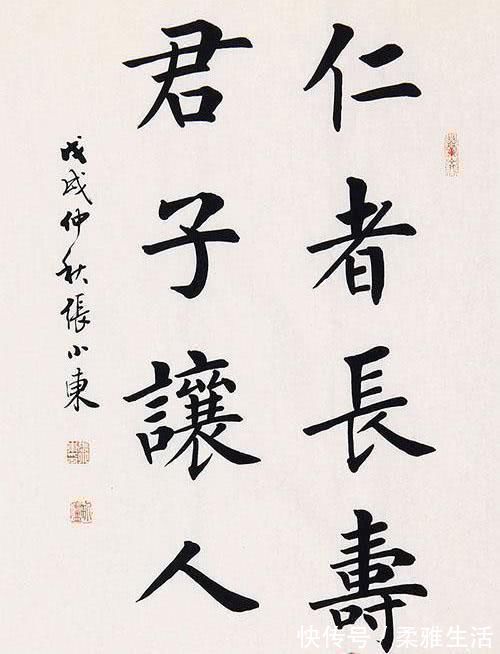 仁者長壽
君子讓人
戊戌仲秋張小東
快传号/柔雅生活